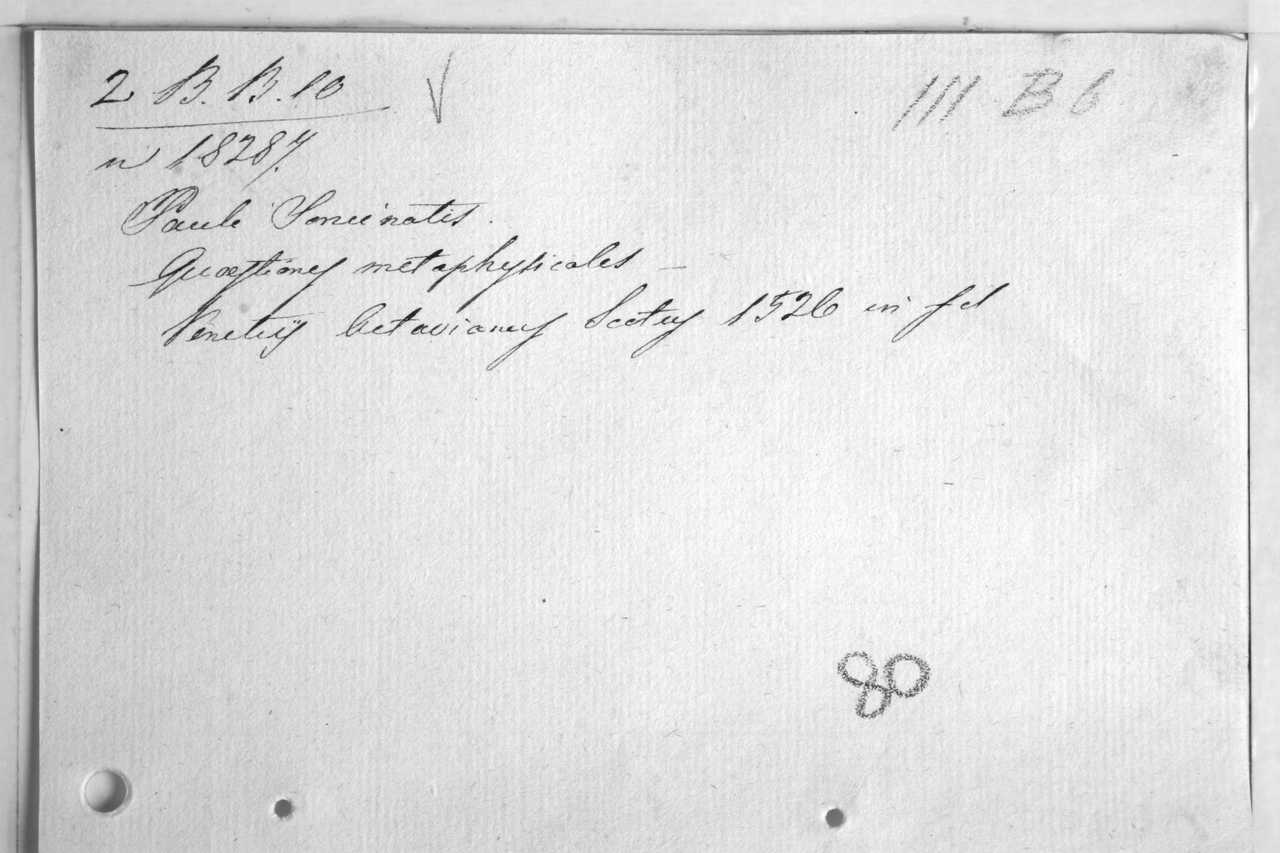 2 B. B. 10
III B b
n 18287.
Pauli Soncinatis.
Quæstiones metaphysicales –
Venetiis Octavianus Scotus 1526 in fol
80